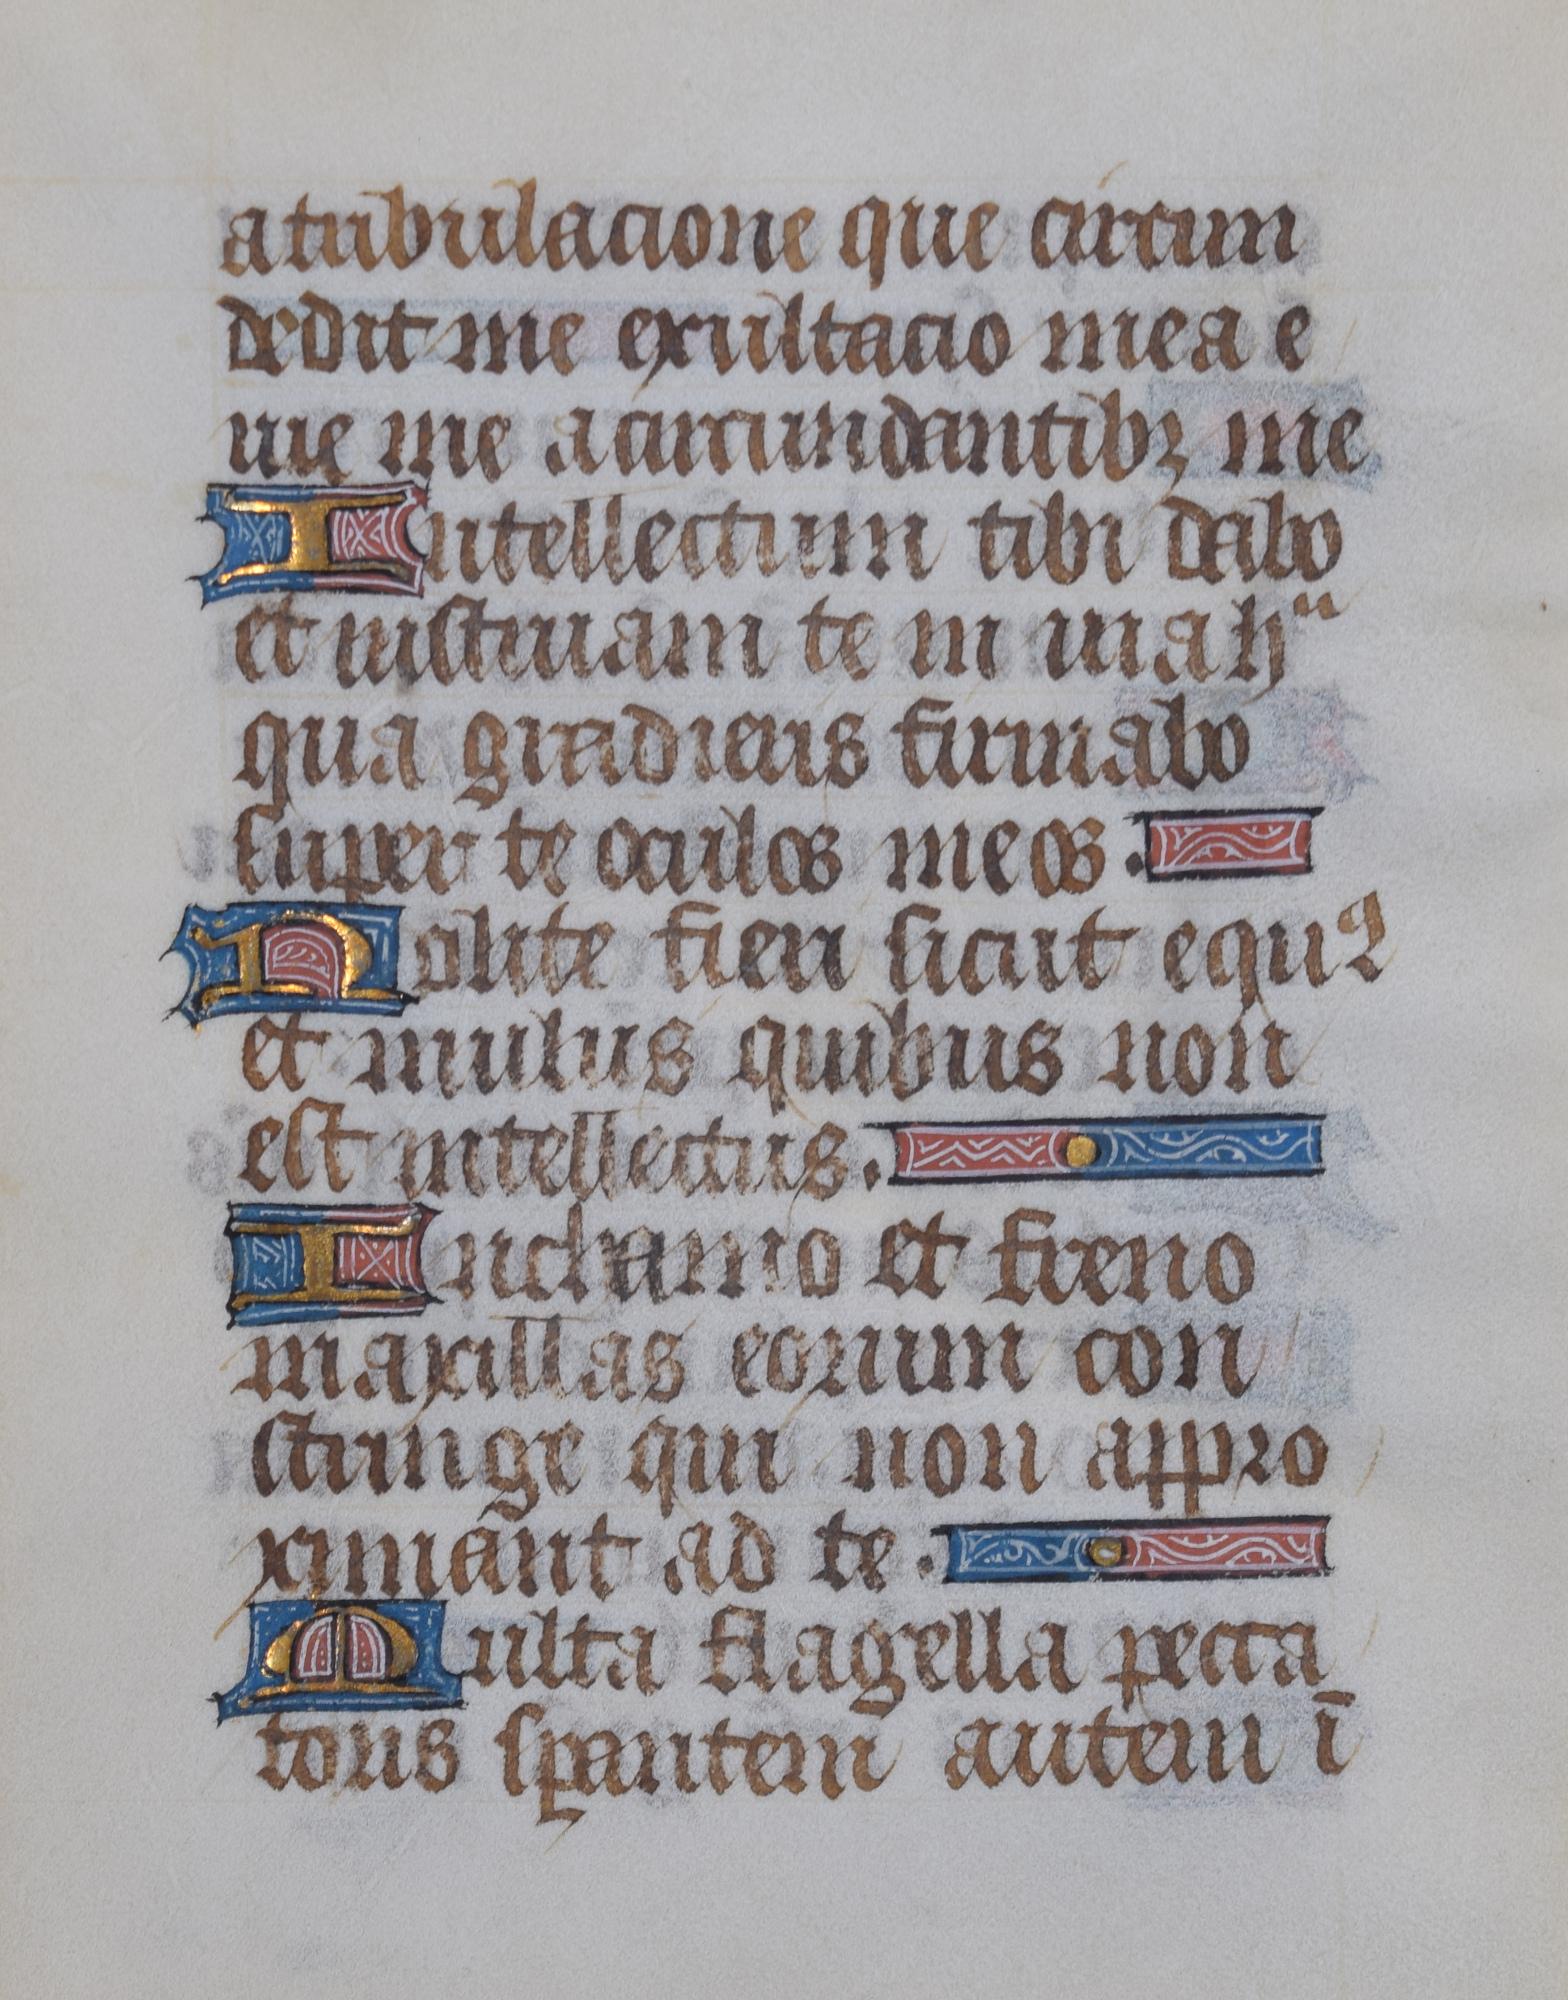 a tribulacione que circum
dedit me exultacio mea e
rue me a circumdantibꝫ me
Intellectum tibi dabo
et instruam te in uia hᵃᶜ
qua gradieris firmabo
super te oculos meos.
Nolite fieri sicut equꝰ
et mulus quibus non
est intellectus.
In chamo et freno
maxillas eorum con
stringe qui non appro
ximant ad te.
Multa flagella pecca
toris sperantem autem ī